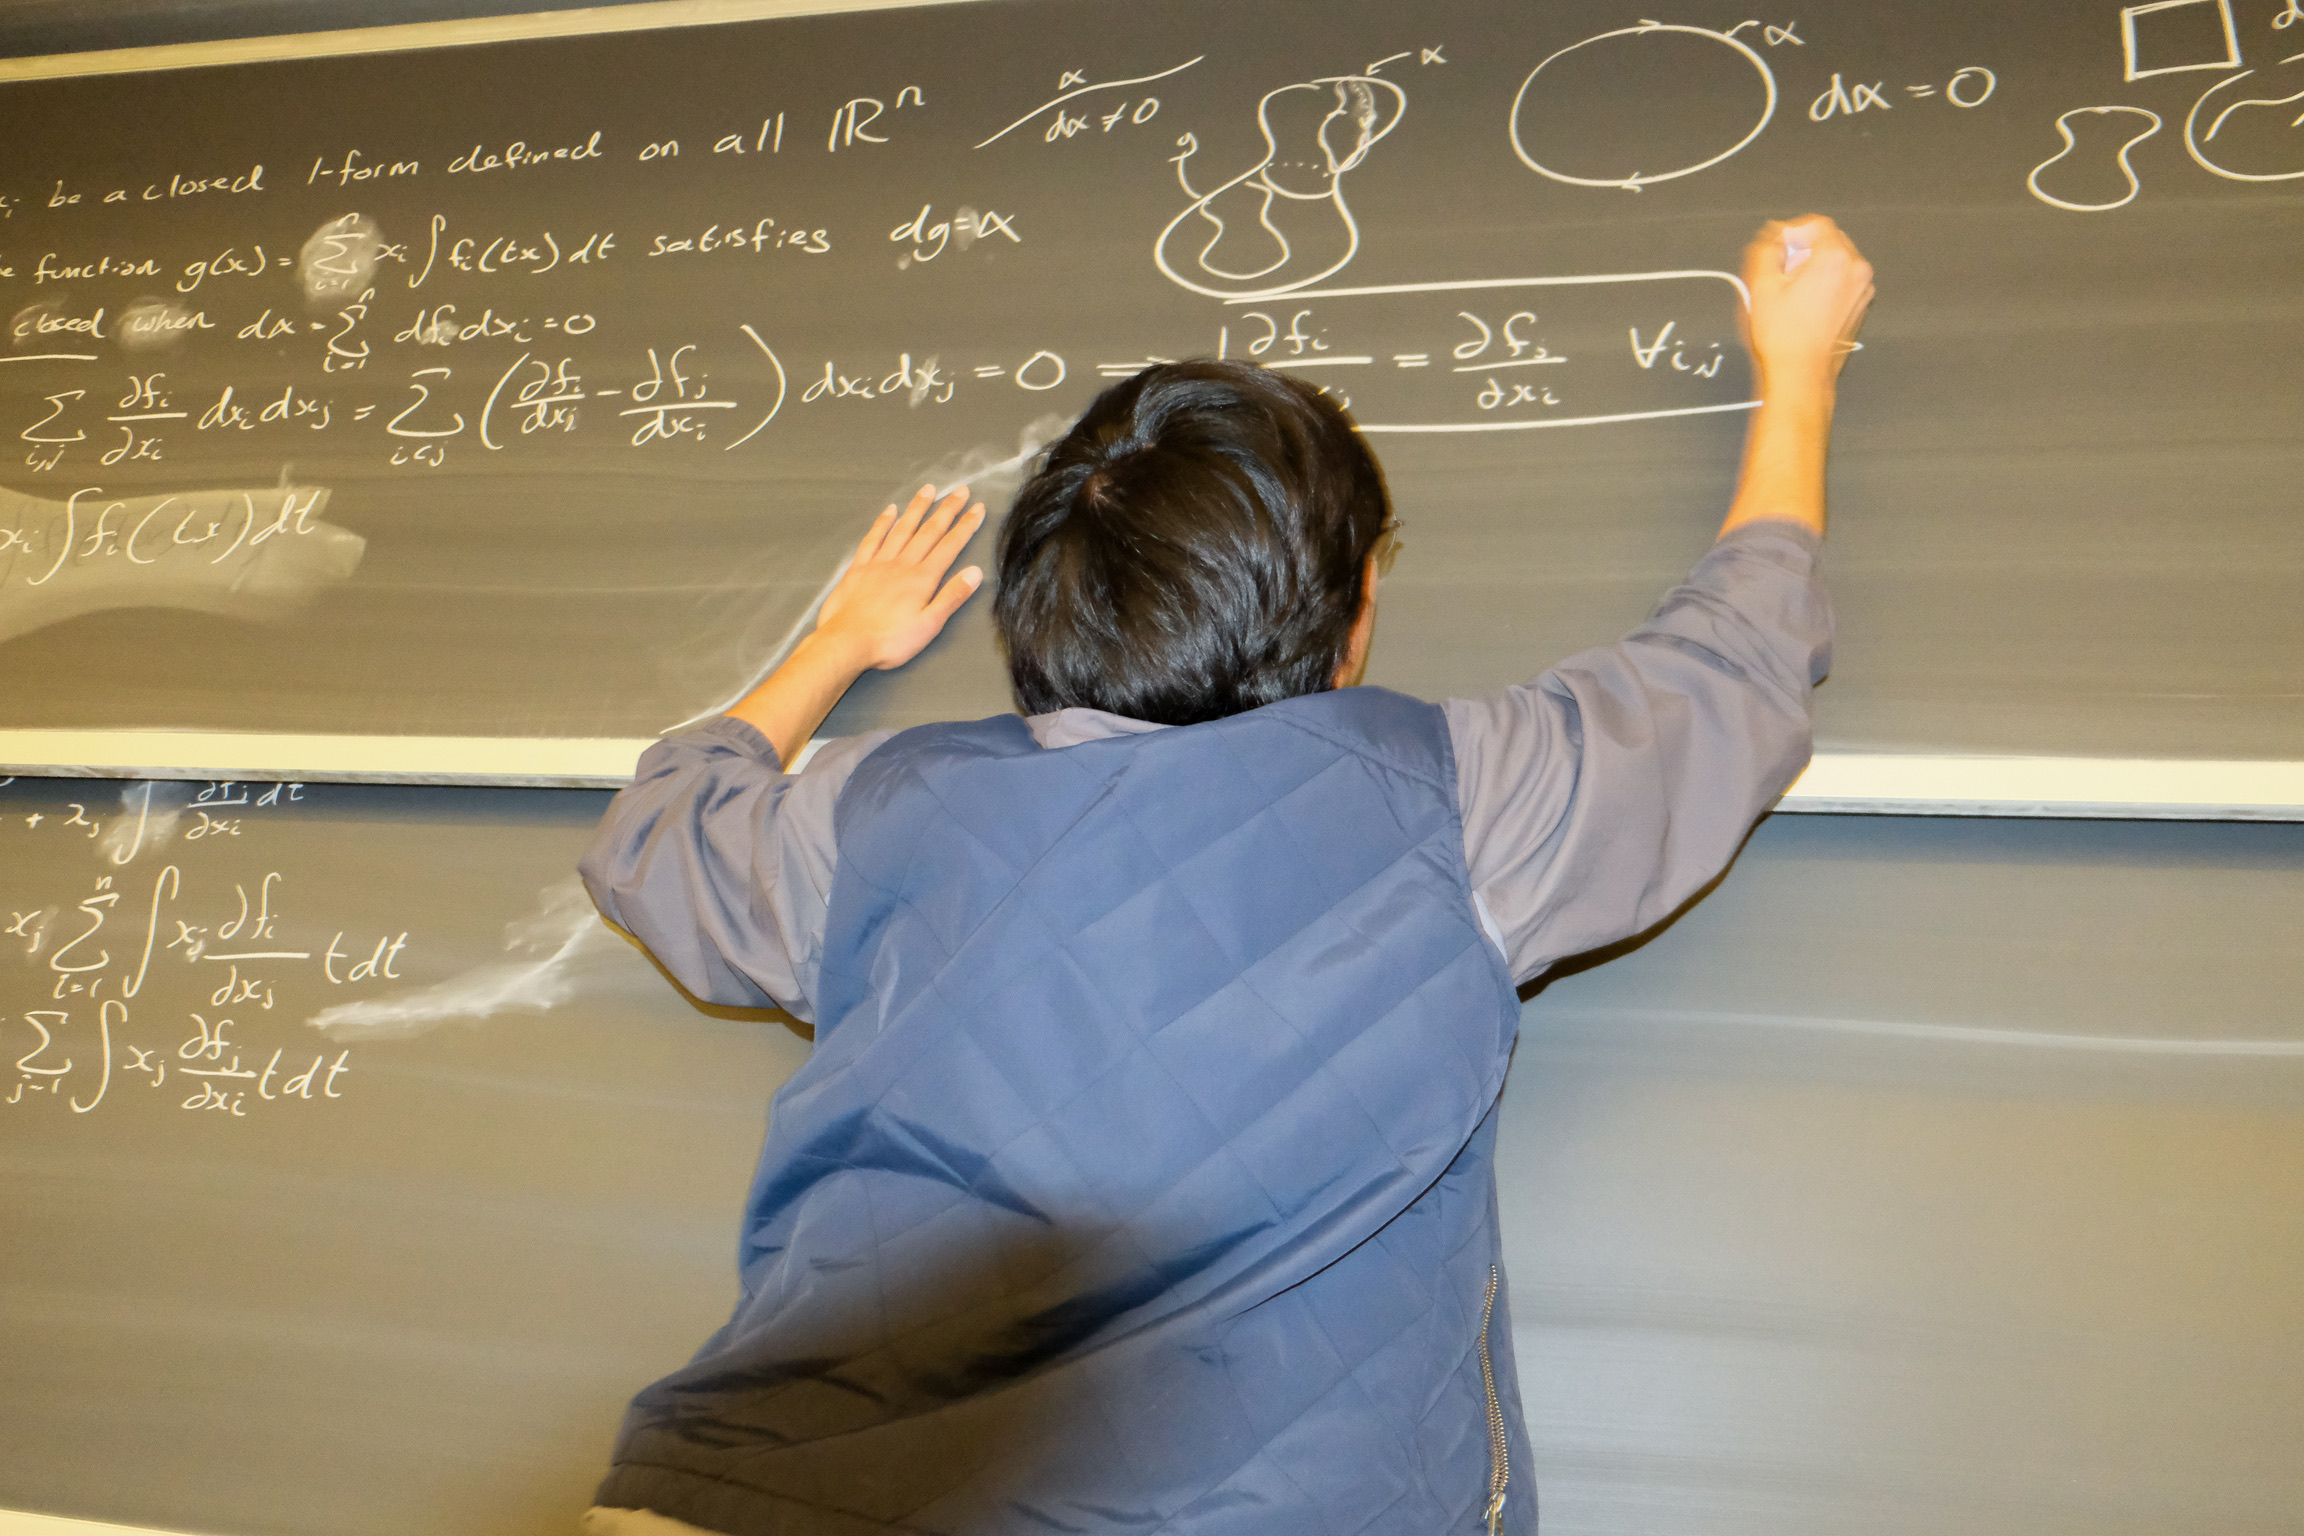 be a closed 1-form defined on all ℝⁿ
α
dα ≠ 0
α
g
α
dα = 0
function g(x) = Σ_{i=1}^{n} xᵢ ∫ fᵢ(tx) dt satisfies dg = α
closed when dα = Σ_{i=1}^{n} dfᵢ dxᵢ = 0
Σ_{i,j} ∂fᵢ/∂xᵢ dxᵢ dxⱼ = Σ_{i<j} (∂fᵢ/dxⱼ − ∂fⱼ/dxᵢ) dxᵢ dxⱼ = 0 ⇒ ∂fᵢ = ∂fⱼ/∂xᵢ ∀i,j
xᵢ ∫ fᵢ(tx) dt
+ xⱼ ∫ ∂fⱼ/∂xᵢ dt
xⱼ Σ_{i=1}^{n} ∫ xⱼ ∂fᵢ/∂xⱼ t dt
Σ_{j=1} ∫ xⱼ ∂fⱼ/∂xᵢ t dt